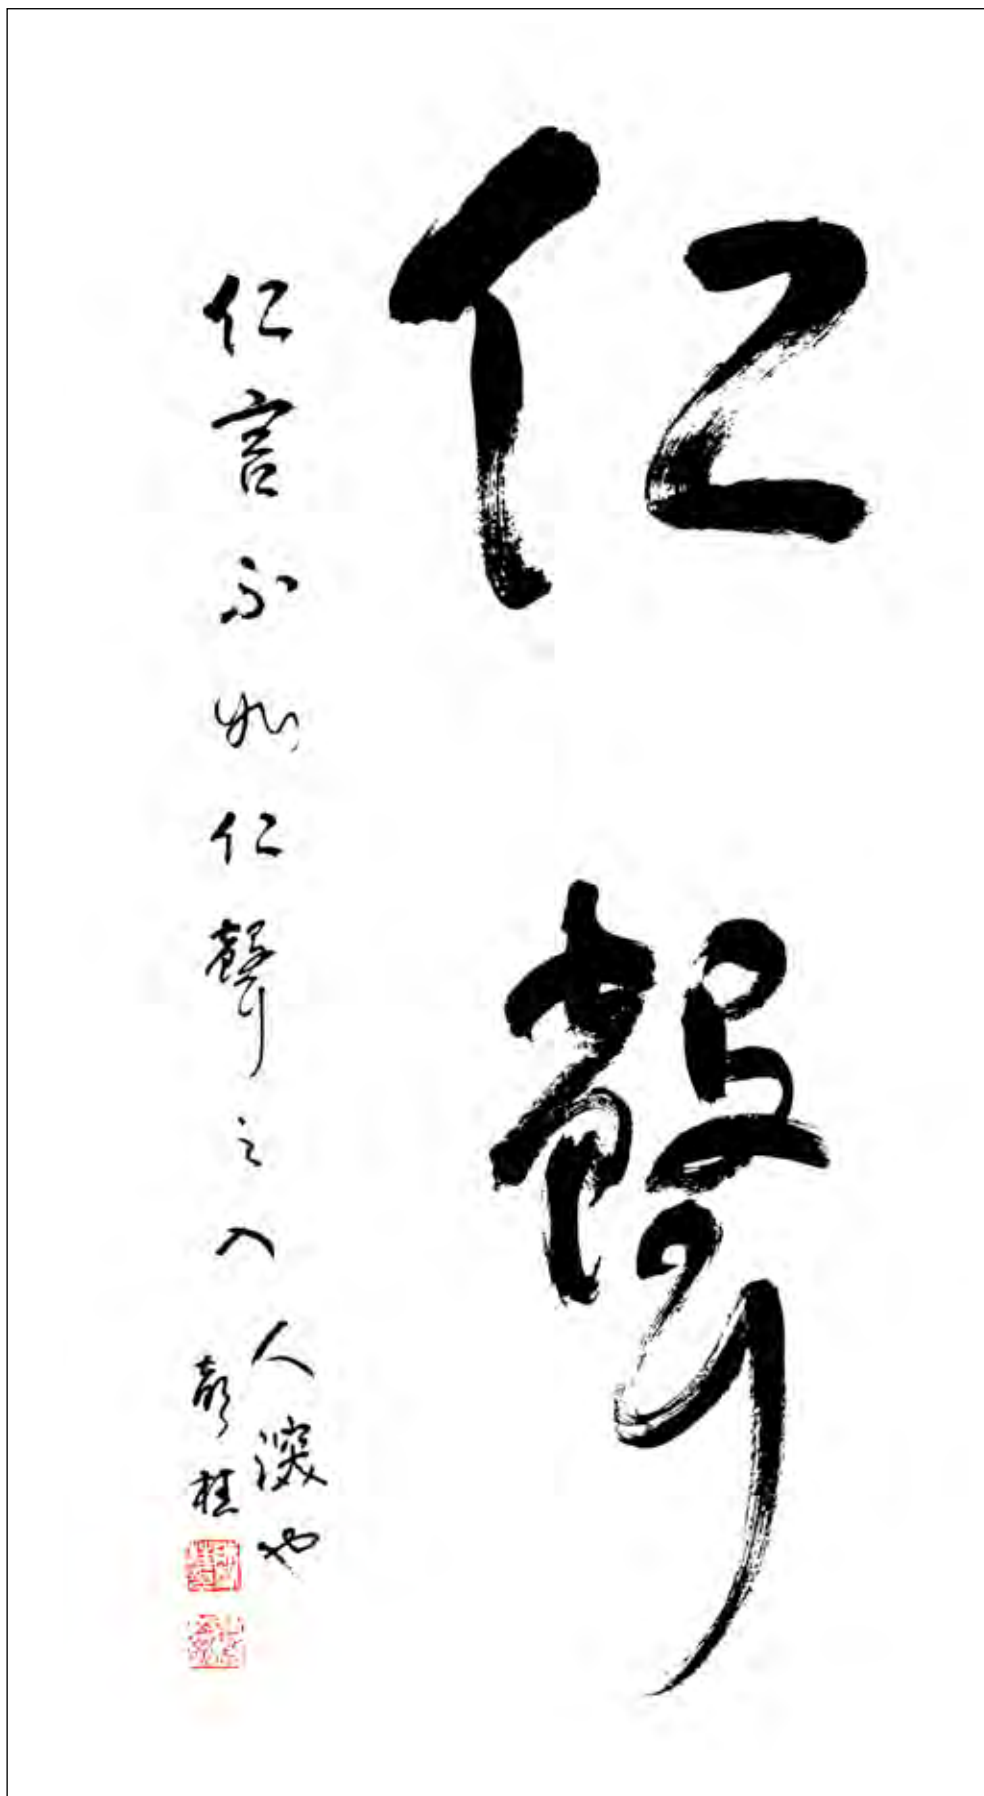 仁聲
仁言不如仁聲之入
人深也
桂